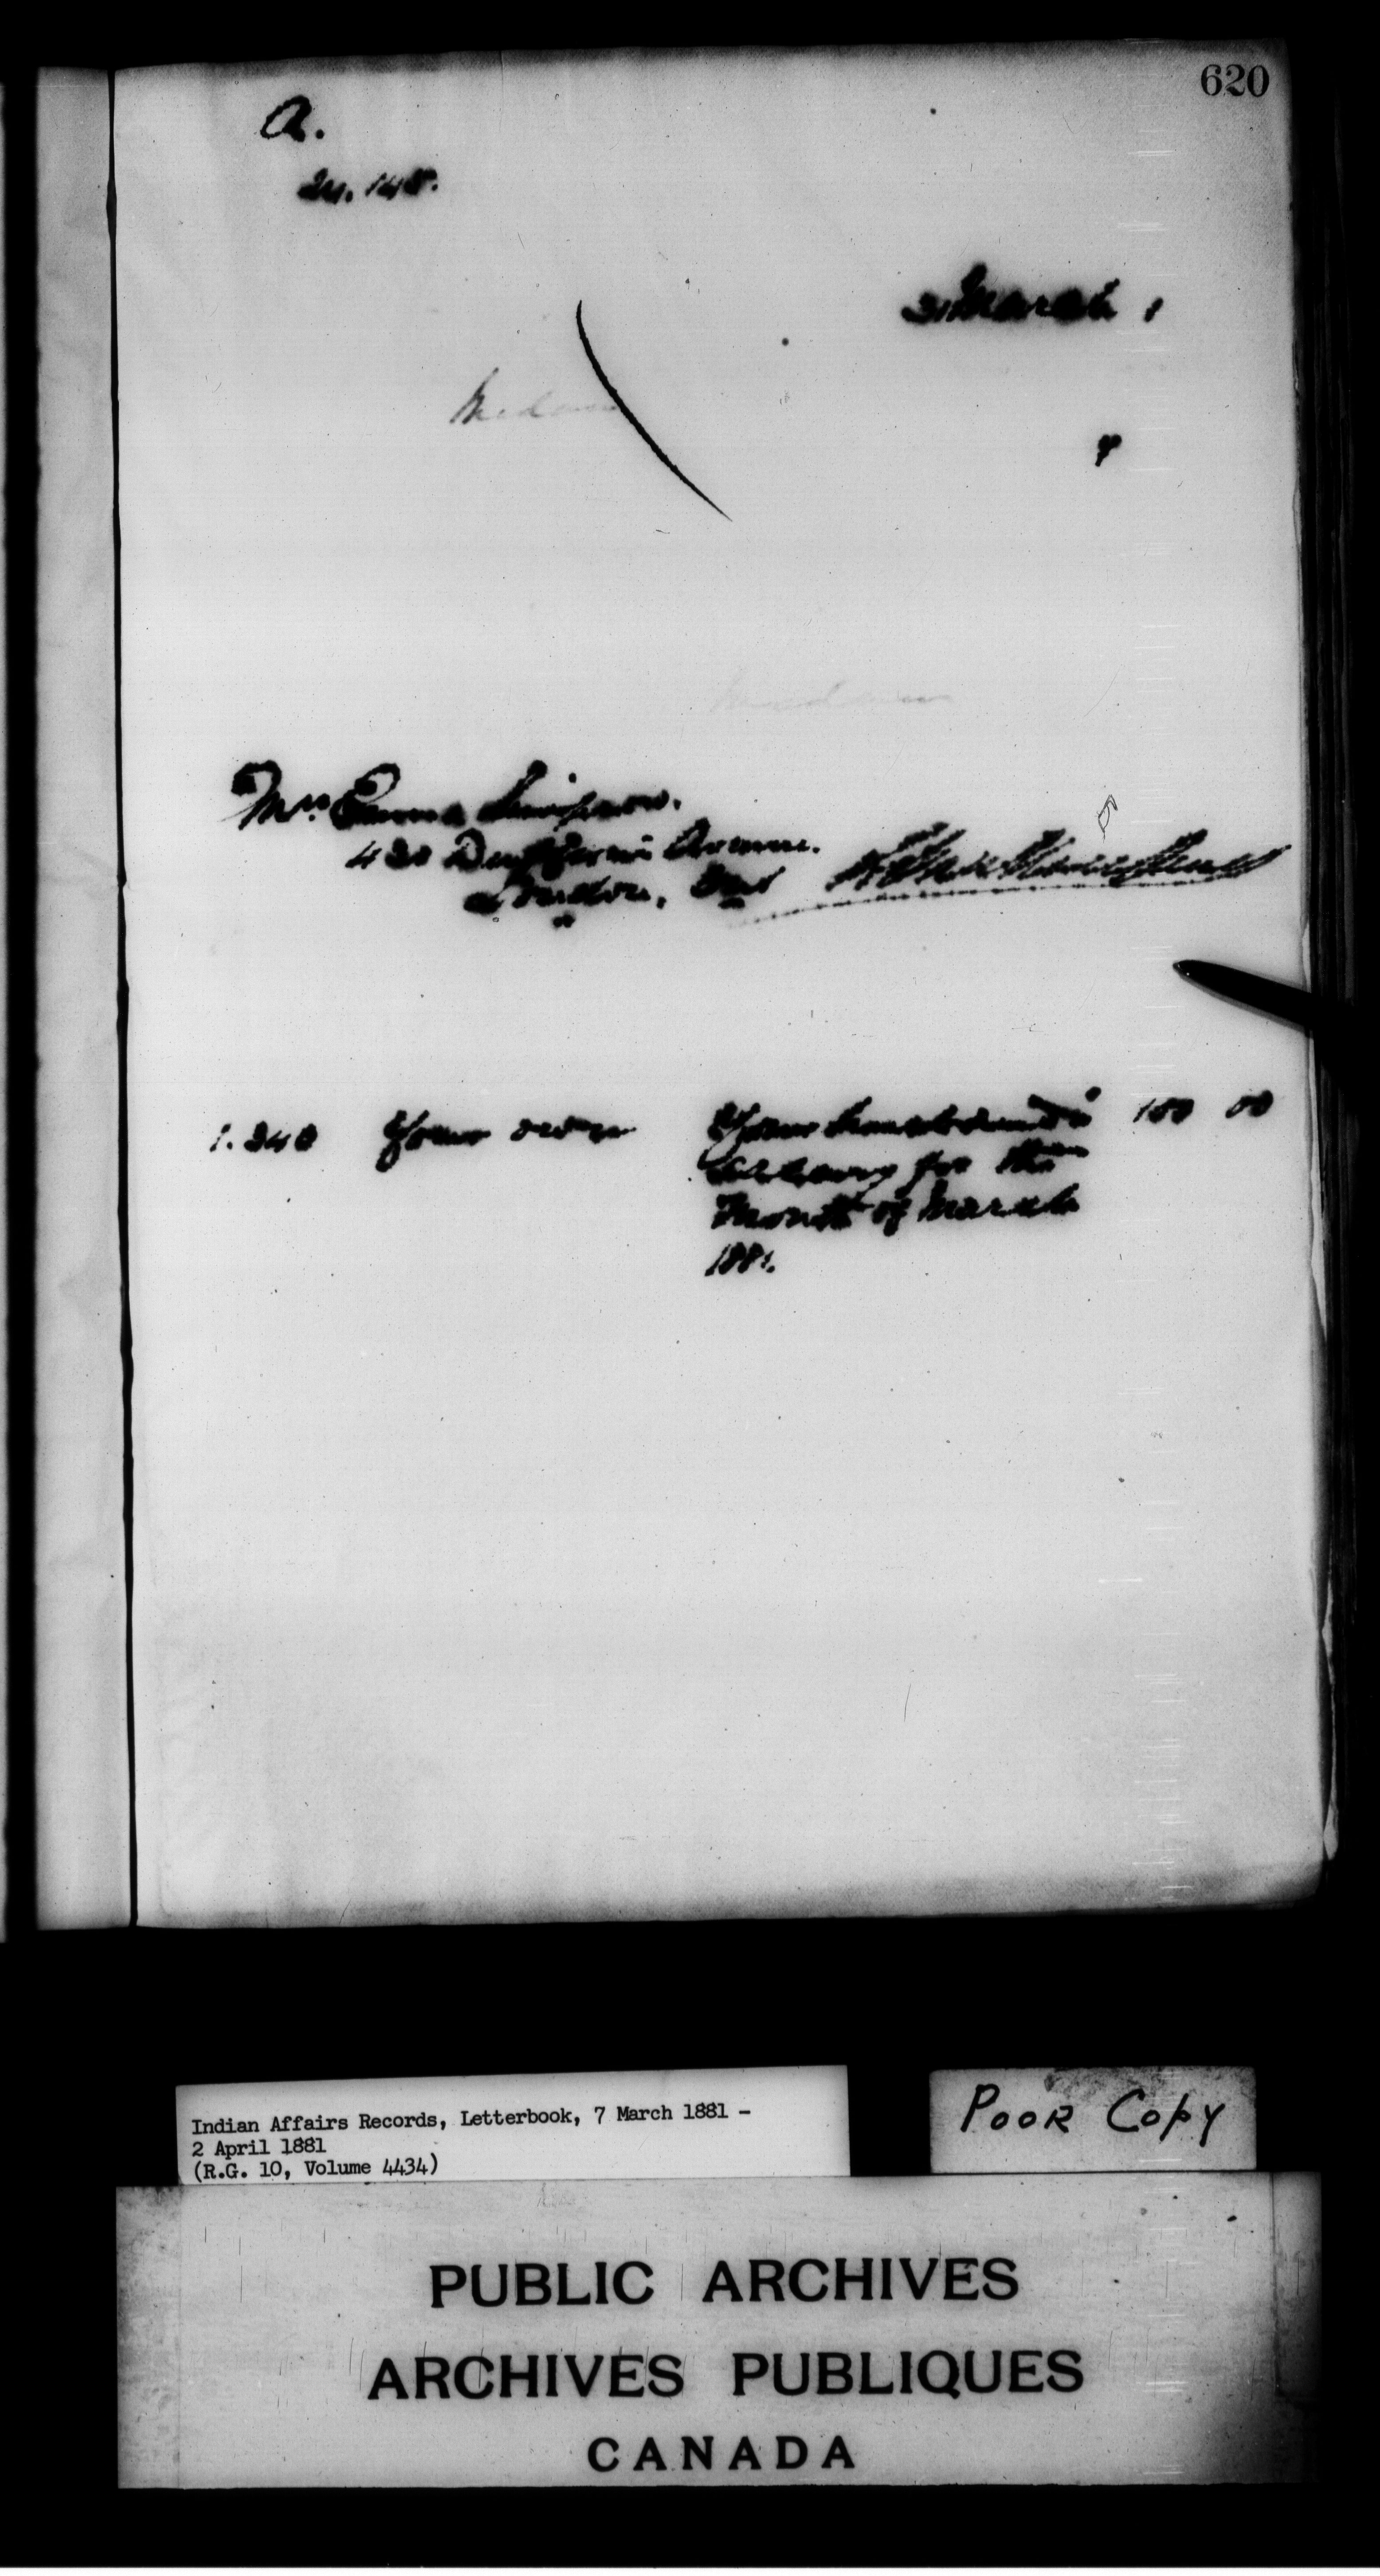 620
A.
24.148.
31 March 1
Madam
4
Madam
Mrs. Emma Simpson.
430 Dufferin Avenue.
London, Ont
1.340 Your order Your husband's 100 00
salary for the
month of March
1881.
Indian Affairs Records, Letterbook, 7 March 1881 -
2 April 1881
(R.G. 10, Volume 4434)
POOR COPY
PUBLIC ARCHIVES
ARCHIVES PUBLIQUES
CANADA